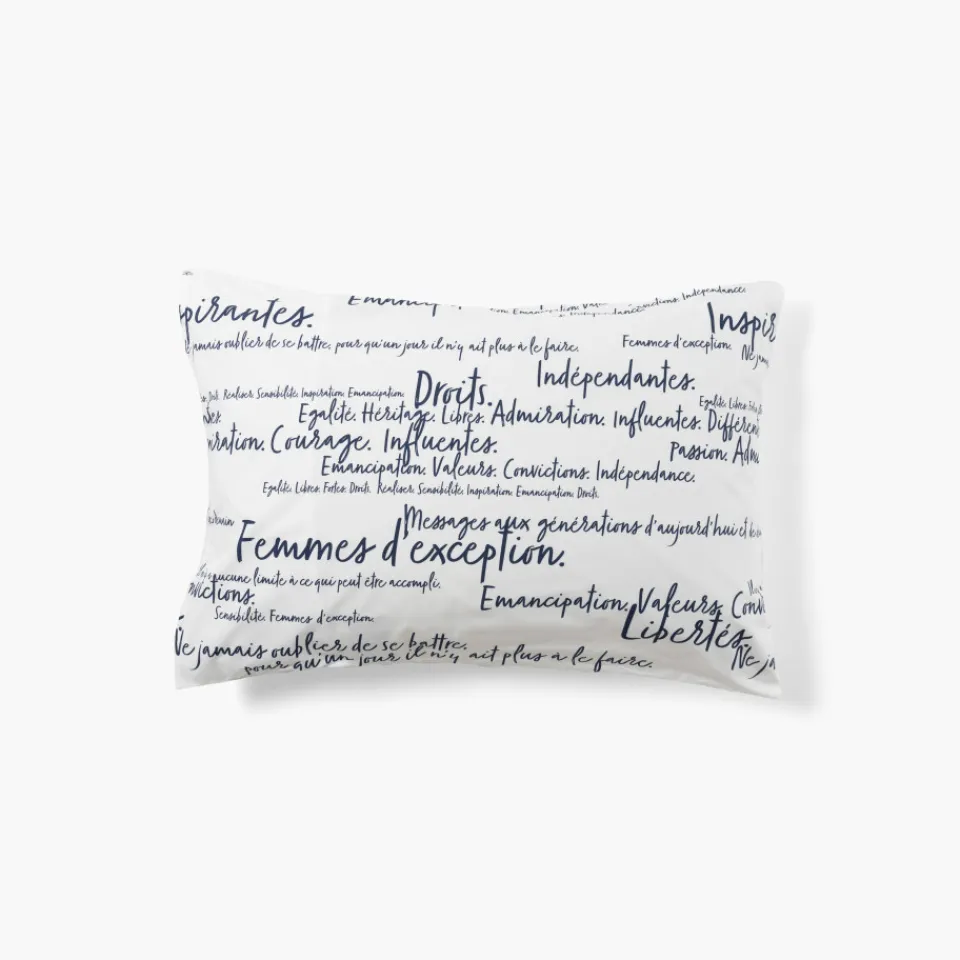 pirantes.
Emancip
Emancipation. Vale
ndépendance.
ictions. Indépendance.
Inspir
jamais oublier de se battre, pour qu'un jour il n'y ait plus à le faire.
Femmes d'exception.
Ne jam
Indépendantes.
Droit. Réaliser. Sensibilité. Inspiration. Emancipation.
Droits.
Egalité. Libres. Fortes.
Egalité. Héritage. Libres. Admiration. Influentes. Différen
ration. Courage. Influentes.
Passion. Adm
Emancipation. Valeurs. Convictions. Indépendance.
Egalité. Libres. Fortes. Droits. Réaliser. Sensibilité. Inspiration. Emancipation. Droits.
Messages aux générations d'aujourd'hui et de
Femmes d'exception.
aucune limite à ce qui peut être accompli.
victions.
Emancipation. Valeurs. Conv
Sensibilité. Femmes d'exception.
Libertés.
Ne jamais oublier de se battre,
pour qu'un jour il n'y ait plus à le faire.
Ne ja